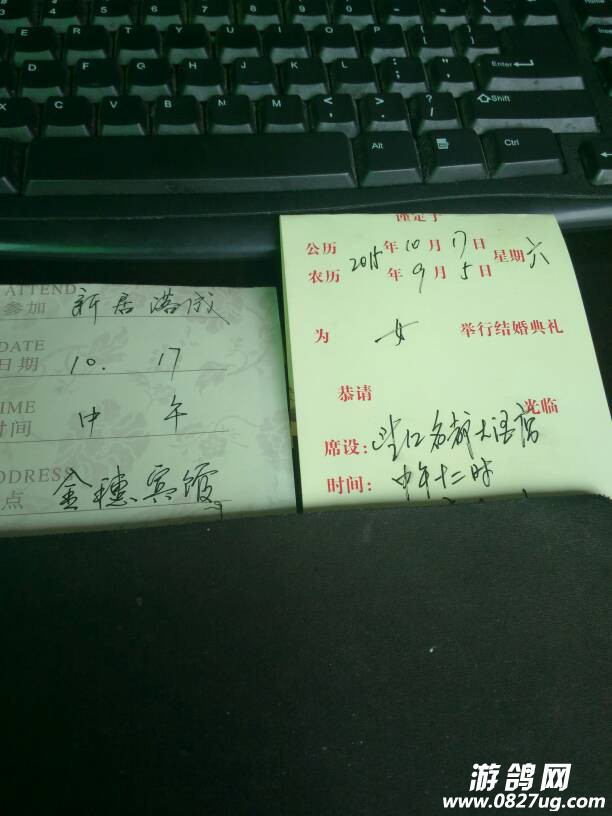 ATTEND
参加 新居落成
DATE
日期 10. 17
TIME
时间 中午
ADDRESS
点 金穗宾馆
谨定于
公历 2015年10月17日 星期六
农历 年9月5日
为 女 举行结婚典礼
恭请
光临
席设: 望江名都大酒店
时间: 中午十二时
Enter
Shift
Alt
Ctrl
游鸽网
www.0827ug.com